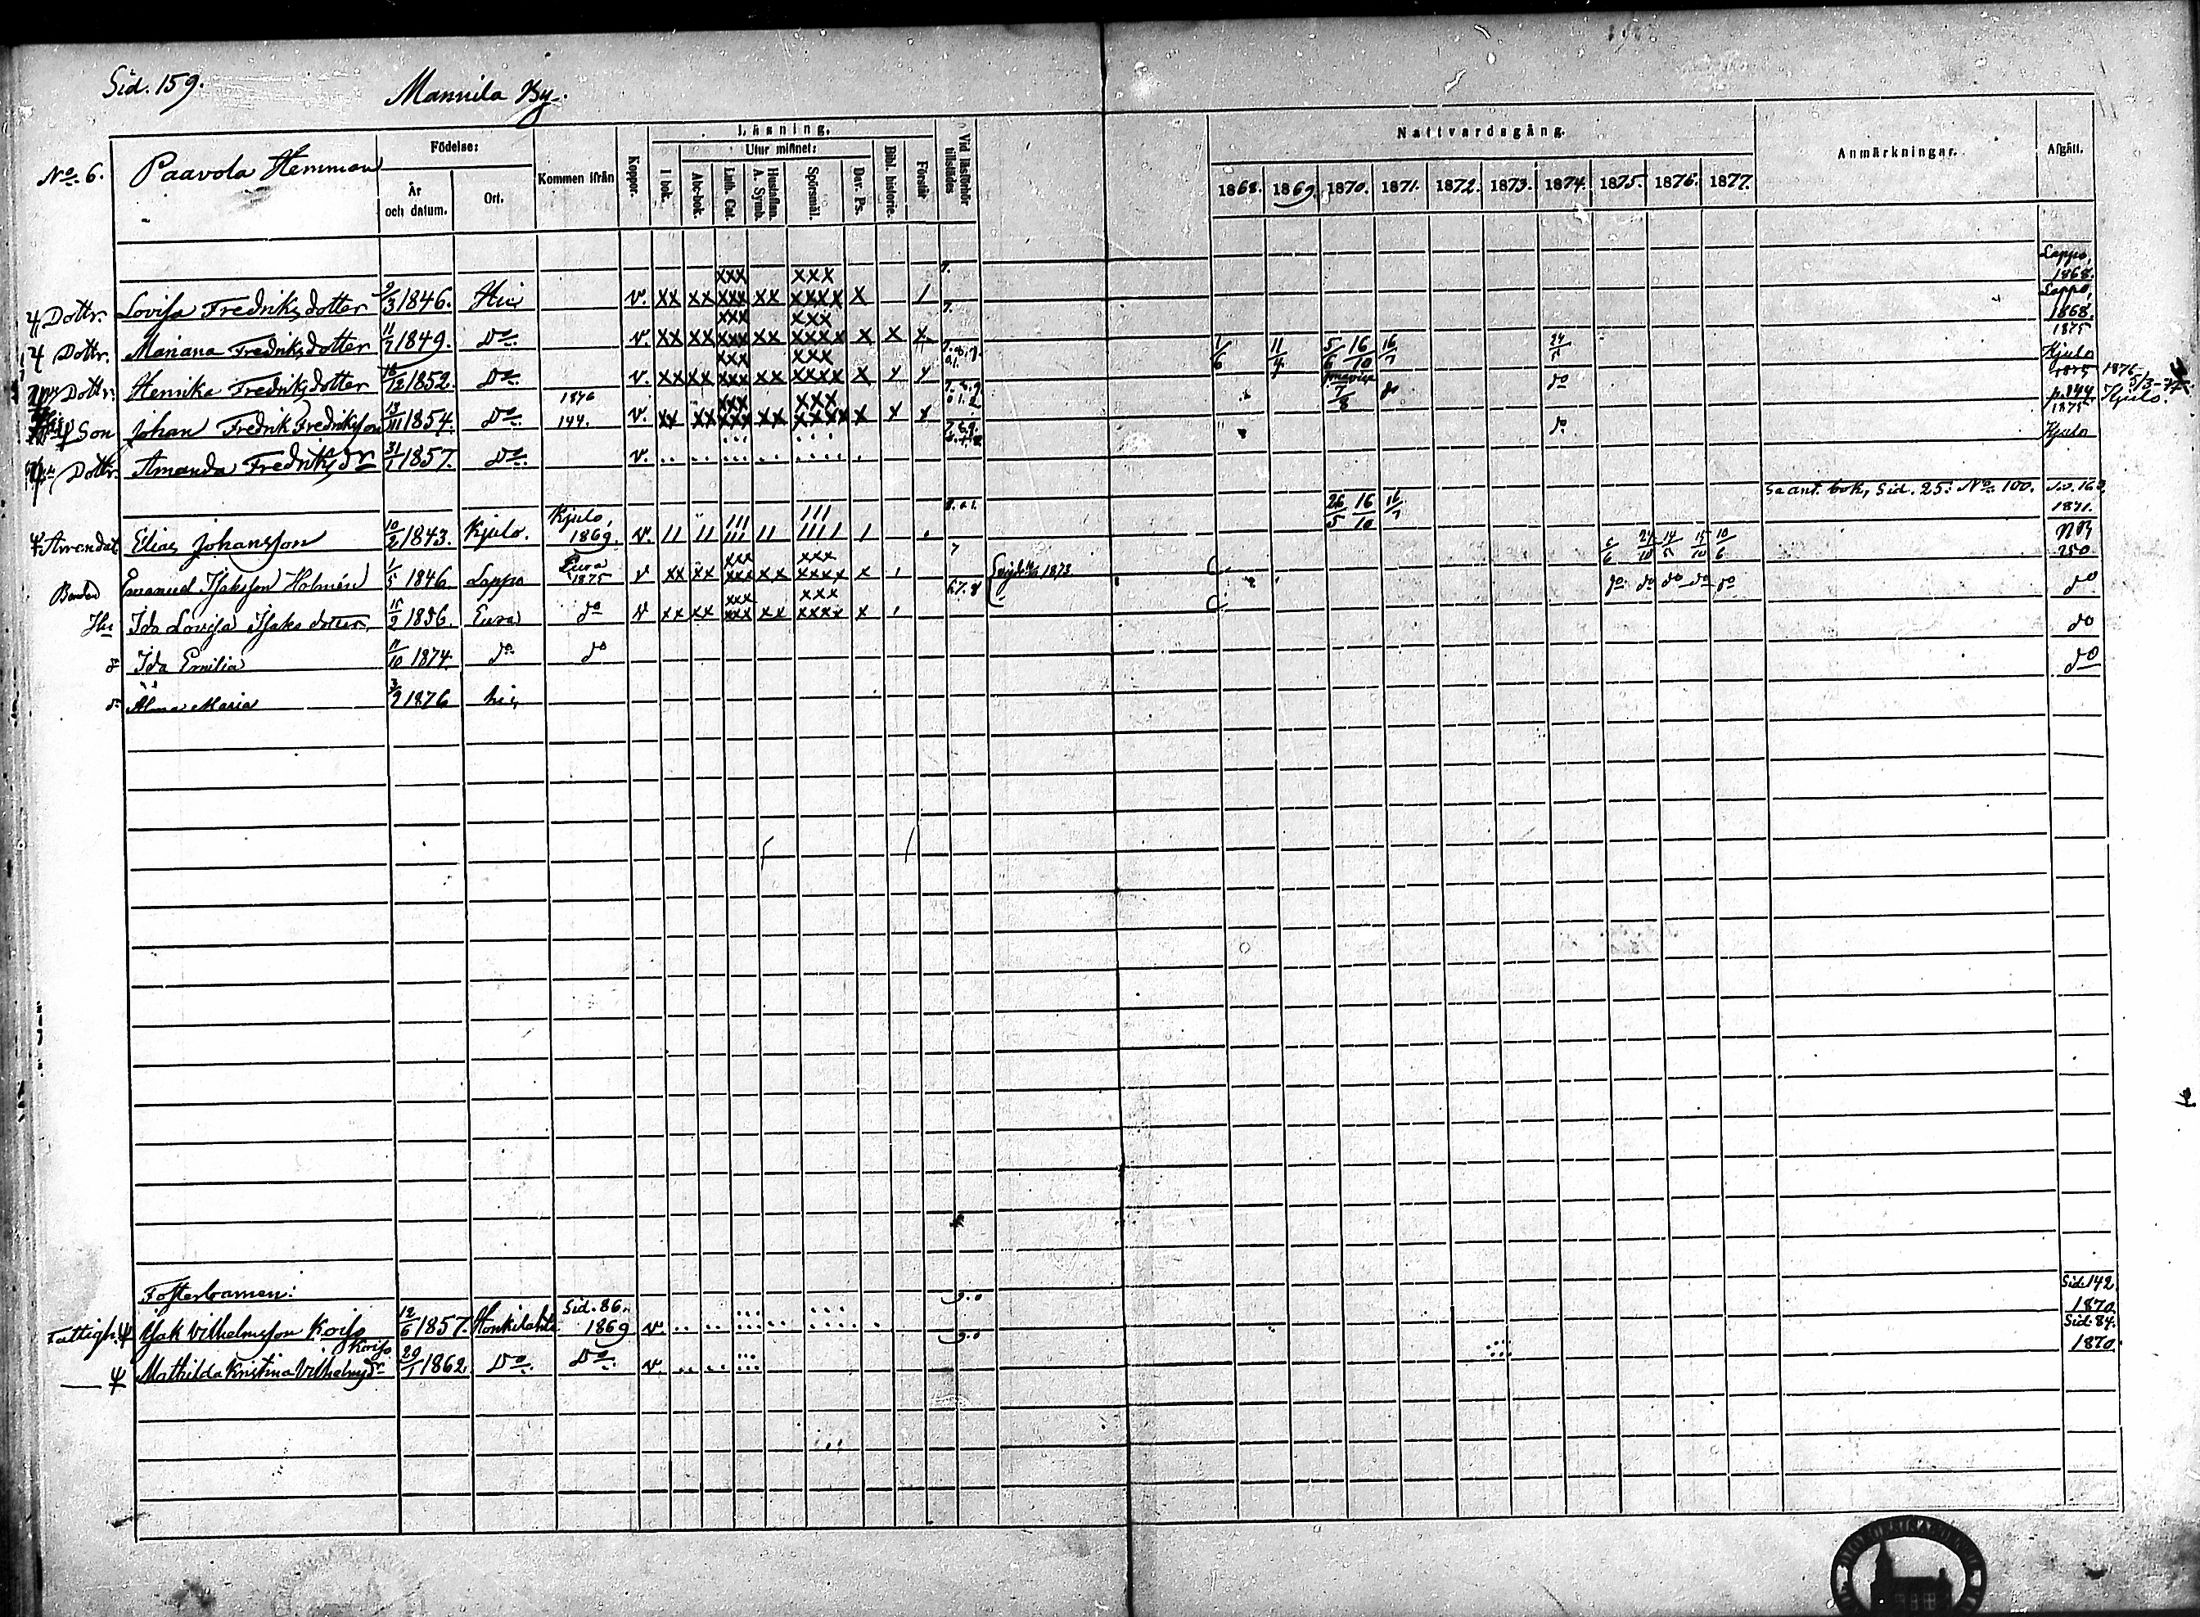 Sid. 159.
Mannila By.
No. 6.
Paavola Hemman
Födelse:
År och datum.
Ort.
Kommen ifrån
Koppor.
Läsning.
I bok.
Utur minnet:
Abc-bok.
Luth. Cat.
Hustaflan. A. Symb.
Spörsmål.
Dav. Ps.
Bibl. historie.
Förstår
Vid läsförhör tillstädes
Nattvardsgång.
1868. 1869. 1870. 1871. 1872. 1873. 1874. 1875. 1876. 1877.
Anmärkningar.
Afgått.
Dottr. Lovisa Fredriksdotter 9/3 1846. Här v. xx xx xxx xxx xx xxx xxxx x / 7. Lappo, 1868.
Dottr. Mariana Fredriksdotter 11/7 1849. Do v. xx xx xxx xxx xx xxx xxxx x x x 7. Lappo, 1868.
Dottr. Henrika Fredriksdotter 18/12 1852. Do v. xx xx xxx xxx xx xxx xxxx x x x 1/6 11/4 5/6 16/10 16/7 24/5 1875 Kjulo
Son Johan Fredrik Fredriksson 13/11 1854. Do 1876 144. v. xx xx xxx xxx xx xxx xxxx x x x 7/8 do do 1875 p. 144 1876 Kjulo.
Dottr. Amanda Fredriks dr 31/1 1857. Do v. do 1875 Kjulo
Arrendat. Elias Johansson 10/2 1843. Kjulo. Kjulo, 1869. v. 11 11 111 111 11 111 1111 1 8. 26/5 16/10 16/7 Se ant. bok, Sid. 25. No. 100. 1871.
Emanuel Isaksson Holmén 1/5 1846 Lappo Eura 1875 v xx xx xxx xxx xx xxx xxxx x 7 1873 6/6 24/10 14/5 15/10 10/6 250.
Hu Ida Lovisa Isaks dotter 15/9 1856. Eura do v xx xx xxx xxx xx xxx xxxx x 6 7. 8 do do do do do do
d Ida Emilia 11/10 1874. do do do
d Alma Maria 3/9 1876 här do
Fosterbarnen:
Fattigh. Isak Vilhelmsson Koiso 12/6 1857. Honkilahti Sid. 86. 1869 v. Sid. 142 1870.
Mathilda Kristina Vilhelms dr Koiso 29/1 1862. Do Do v. Sid. 84. 1870.